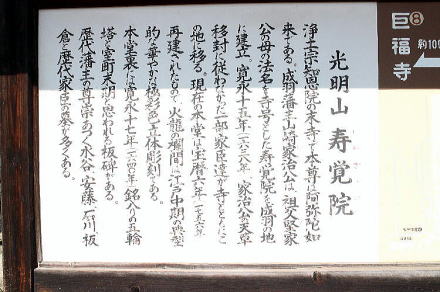 光明山 寿覚院
浄土宗知恩院の末寺で本尊は阿弥陀如
来である。成羽藩主山崎家治公は、祖父堅家
公の母の法名を寺号とした寿覚院を成羽の地
に建立。寛永十五年(一六三八)、家治公の天草
移封に従わなかった一部家臣達が寺とともにこ
の地に移る。現在の本堂は宝暦六年(一七五六)
再建されたもので火龍の欄間は江戸中期の典型
的な華やかな極彩色立体彫刻である。
本堂裏に寛永十七年(一六四〇年)銘入りの五輪
塔と室町末期と思われる板碑がある。
歴代藩主の尊崇あつく水谷、安藤、石川、板
倉と歴代家臣の墓が多くある。
⑧
巨福寺
約100